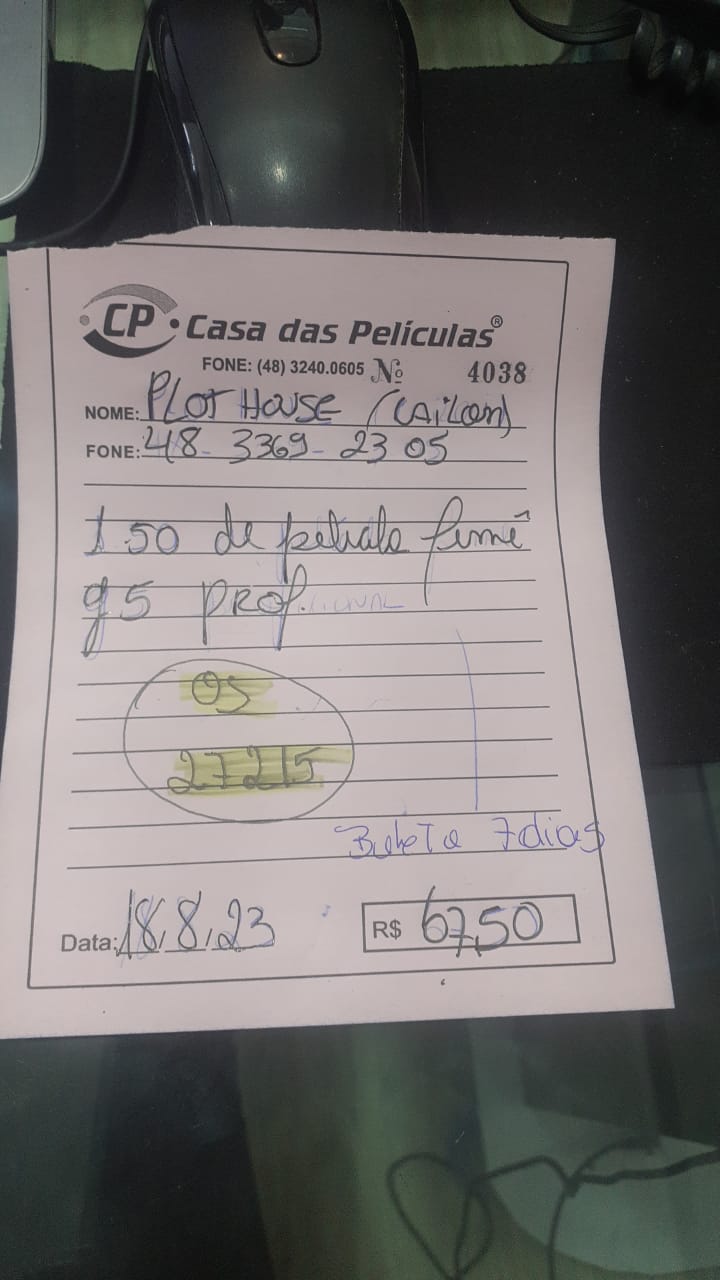 CP · Casa das Películas®
FONE: (48) 3240.0605 Nº 4038
NOME: PLOT HOUSE (Cailon)
FONE: 48 3369-23 05
1.50 de pelicula fumê
g5 PROF.
OS
27215
Boleto 7 dias
Data: 18,8,23 R$ 67,50